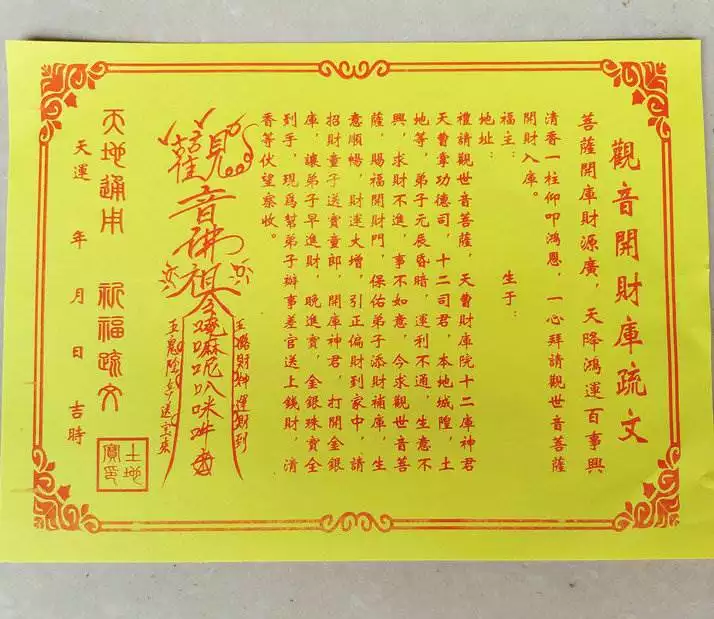 觀音開財庫疏文
菩薩開庫財源廣，天降鴻運百事興
清香一柱仰叩鴻恩，一心拜請觀世音菩薩
開財入庫。
福主：　生于：
地址：
禮請觀世音菩薩，天曹財庫院十二庫神君
天曹掌功德司，十二司君，本地城隍，土
地等，弟子元辰昏暗，運利不通，生意不
興，求財不進，事不如意，今求觀世音菩
薩，賜福開財門，保佑弟子添財補庫，生
意順暢，財運大增，引正偏財到家中，請
招財童子送寶童郎，開庫神君，打開金銀
庫，讓弟子早進財，晚進寶，金銀珠寶全
到手，現爲幫弟子辦事差官送上錢財，清
香等伏望察收。
觀音佛祖令
嘛呢叭咪吽
五路財神運財到
五鬼陰兵送寶來
天地通用　祈福疏文
天運　年　月　日　吉時
土地寶印